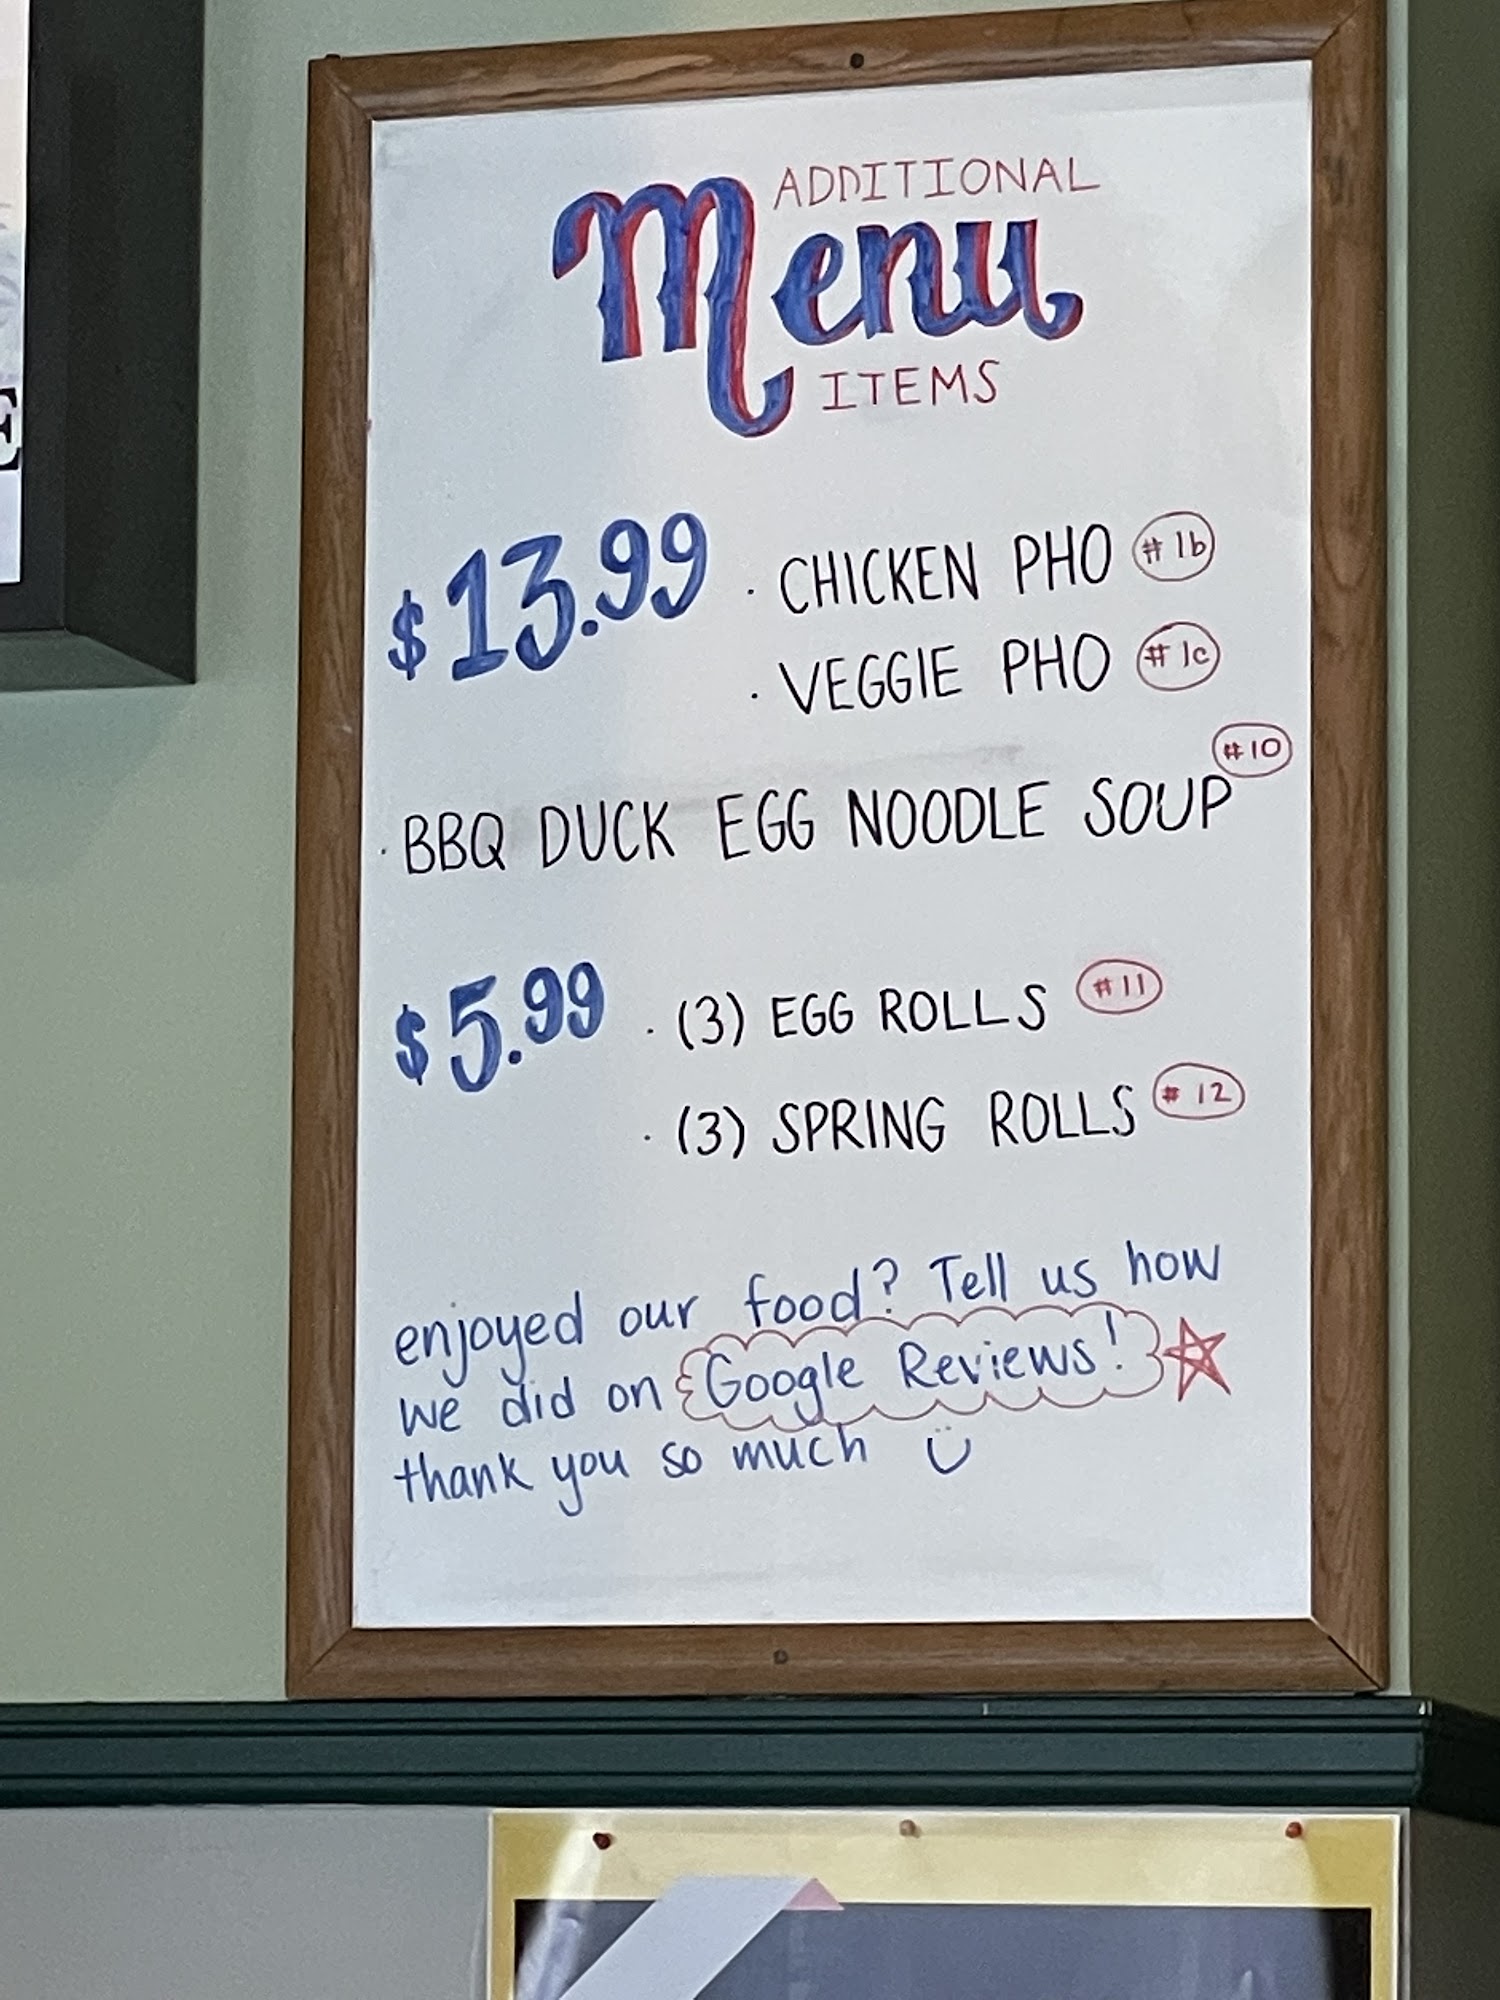 E
ADDITIONAL
Menu
ITEMS
$13.99 · CHICKEN PHO #1b
· VEGGIE PHO #1c
#10
· BBQ DUCK EGG NOODLE SOUP
$5.99 · (3) EGG ROLLS #11
· (3) SPRING ROLLS #12
enjoyed our food? Tell us how
we did on Google Reviews!
thank you so much